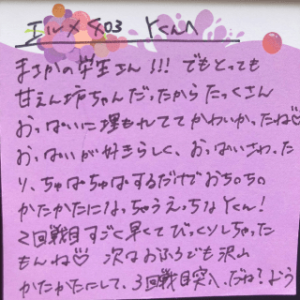 エルメ 403 Yくんへ
まさかの学生さん!!! でもとっても
甘えん坊ちゃんだったからたっくさん
おっぱいに埋もれててかわいかったね♡
おっぱいが好きらしく、おっぱいさわった
り、ちゅぱちゅぱするだけでおち○ち○
かたかたになっちゃうえっちなYくん!
2回戦目すごく早くてびっくりしちゃった
もんね♡ 次はおふろでも沢山
かたかたにして、3回戦目突入、だね?